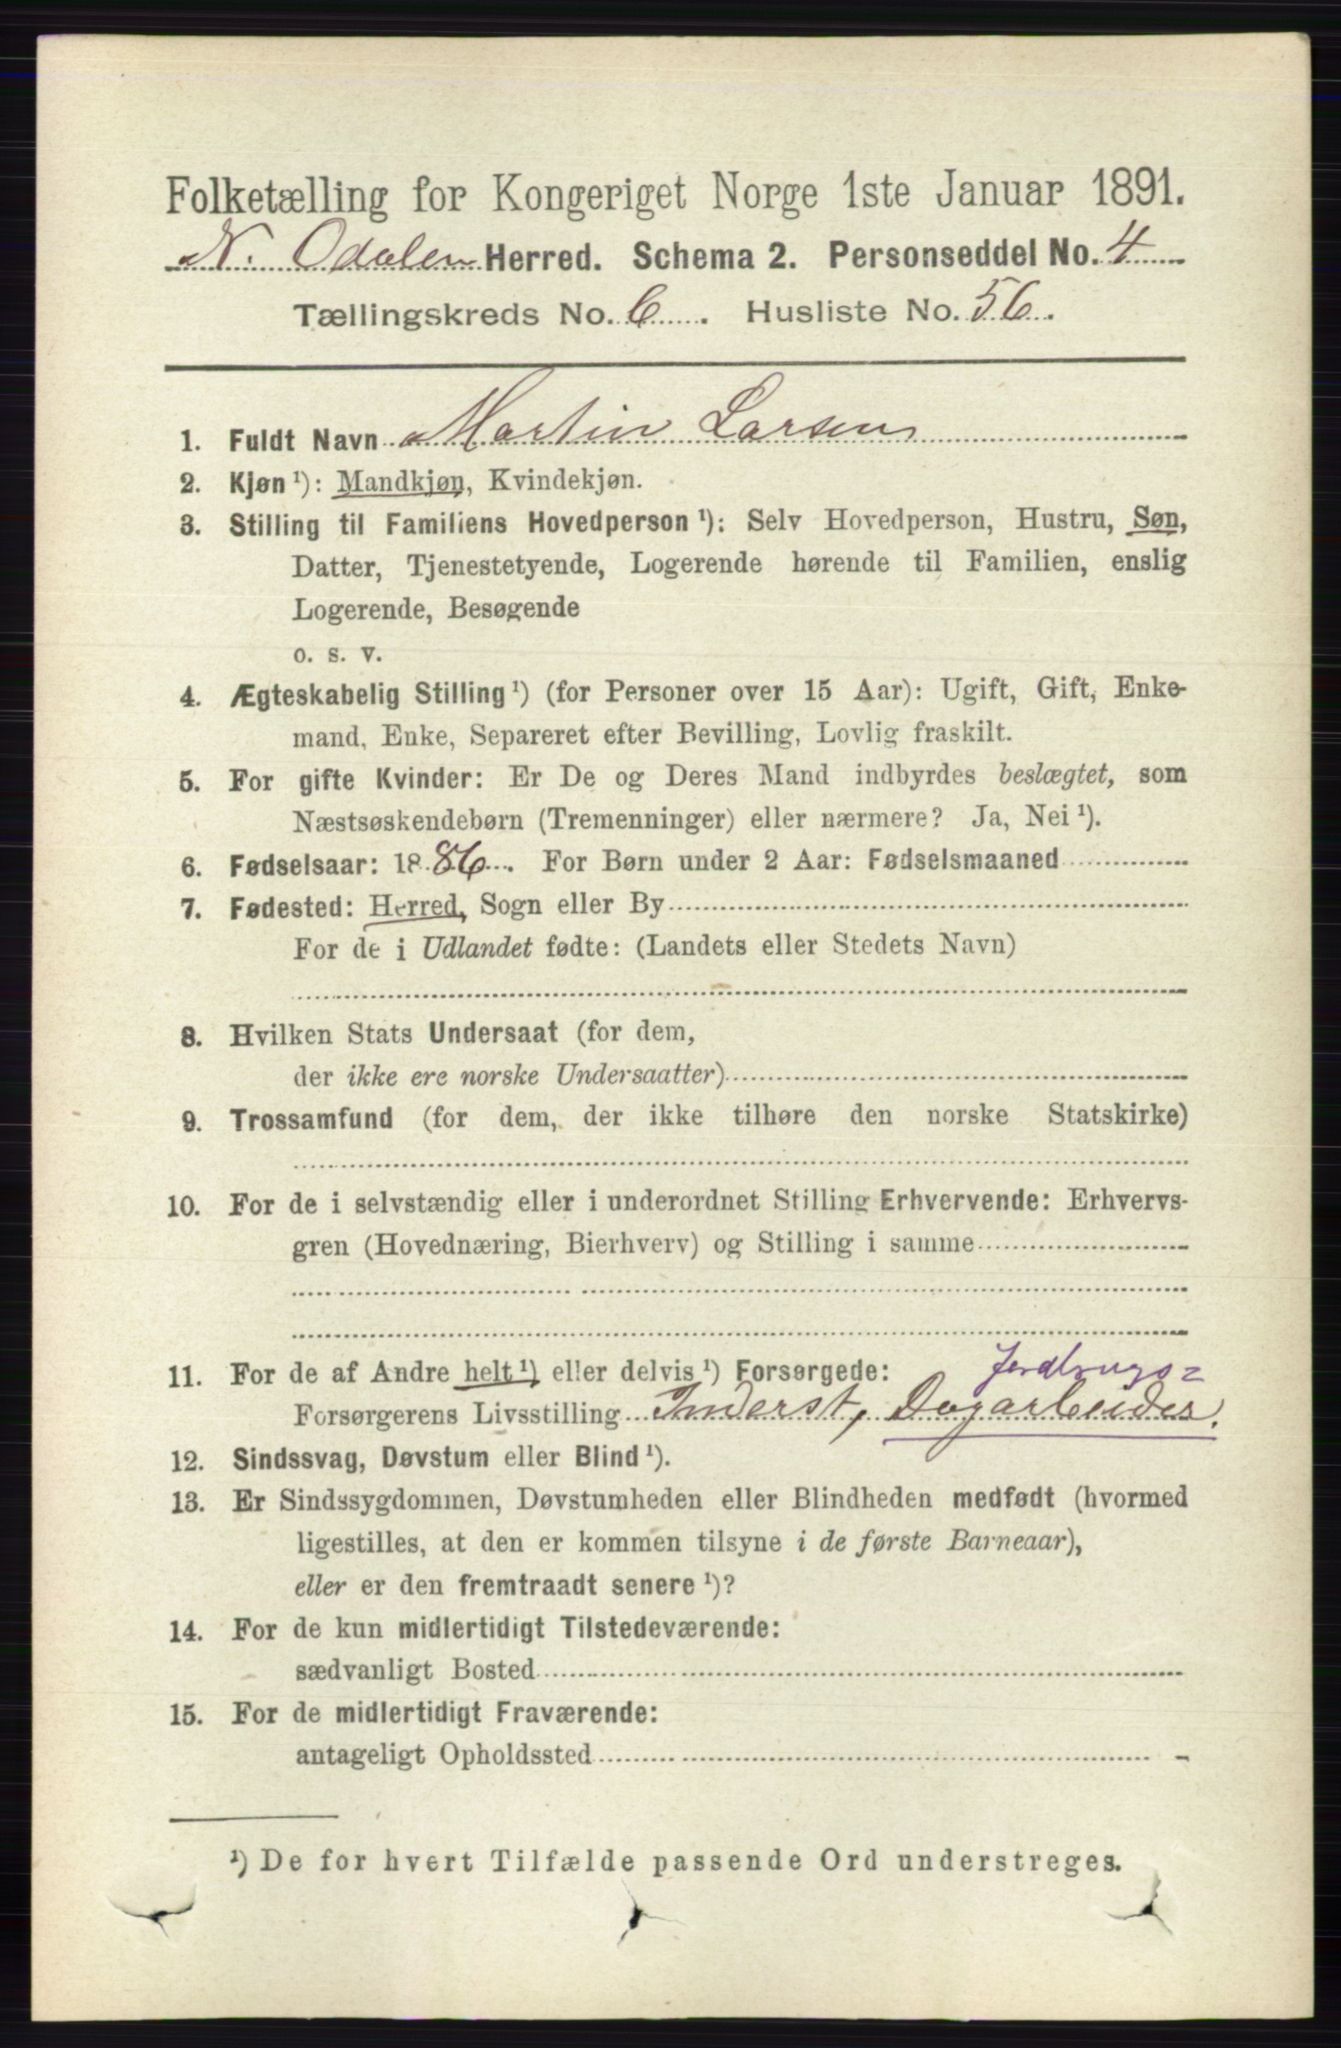 Folketælling for Kongeriget Norge 1ste Januar 1891.
N. Odalen Herred. Schema 2. Personseddel No. 4
Tællingskreds No. 6. Husliste No. 56.
1. Fuldt Navn Martin Larsen
2. Kjøn ¹): Mandkjøn, Kvindekjøn.
3. Stilling til Familiens Hovedperson ¹): Selv Hovedperson, Hustru, Søn,
Datter, Tjenestetyende, Logerende hørende til Familien, enslig
Logerende, Besøgende
o. s. v.
4. Ægteskabelig Stilling ¹) (for Personer over 15 Aar): Ugift, Gift, Enke-
mand, Enke, Separeret efter Bevilling, Lovlig fraskilt.
5. For gifte Kvinder: Er De og Deres Mand indbyrdes beslægtet, som
Næstsøskendebørn (Tremenninger) eller nærmere? Ja, Nei ¹).
6. Fødselsaar: 1886. For Børn under 2 Aar: Fødselsmaaned
7. Fødested: Herred, Sogn eller By
For de i Udlandet fødte: (Landets eller Stedets Navn)
8. Hvilken Stats Undersaat (for dem,
der ikke ere norske Undersaatter)
9. Trossamfund (for dem, der ikke tilhøre den norske Statskirke)
10. For de i selvstændig eller i underordnet Stilling Erhvervende: Erhvervs-
gren (Hovednæring, Bierhverv) og Stilling i samme
11. For de af Andre helt ¹) eller delvis ¹) Forsørgede: Jordbrugs=
Forsørgerens Livsstilling Inderst, Dagarbeider.
12. Sindssvag, Døvstum eller Blind ¹).
13. Er Sindssygdommen, Døvstumheden eller Blindheden medfødt (hvormed
ligestilles, at den er kommen tilsyne i de første Barneaar),
eller er den fremtraadt senere ¹)?
14. For de kun midlertidigt Tilstedeværende:
sædvanligt Bosted
15. For de midlertidigt Fraværende:
antageligt Opholdssted
¹) De for hvert Tilfælde passende Ord understreges.